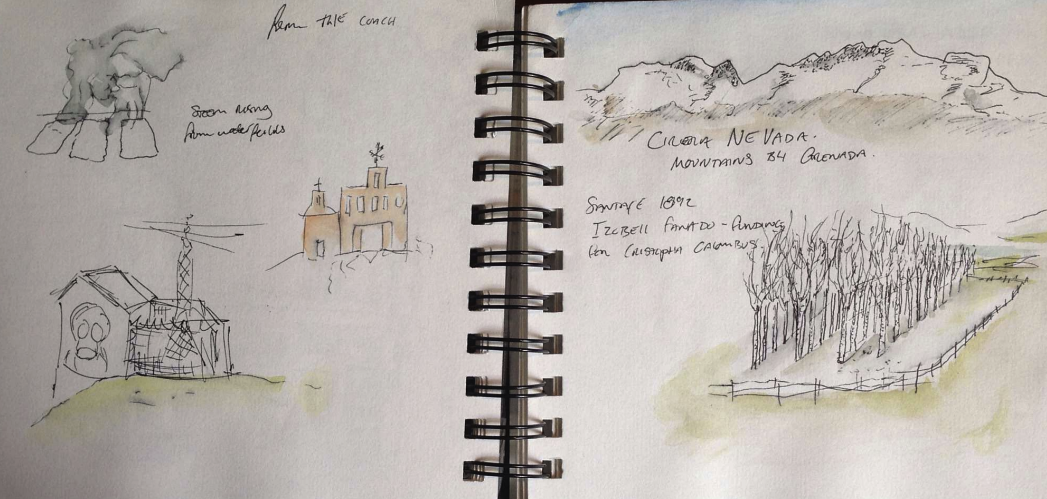 From THE COACH
Steam rising
from waterfields
CIRERA NEVADA.
MOUNTAINS By GRENADA.
SANTAFE 1892
IZEBELL FANADO - FUNDING
For CRISTOPHA CALUMBUS.